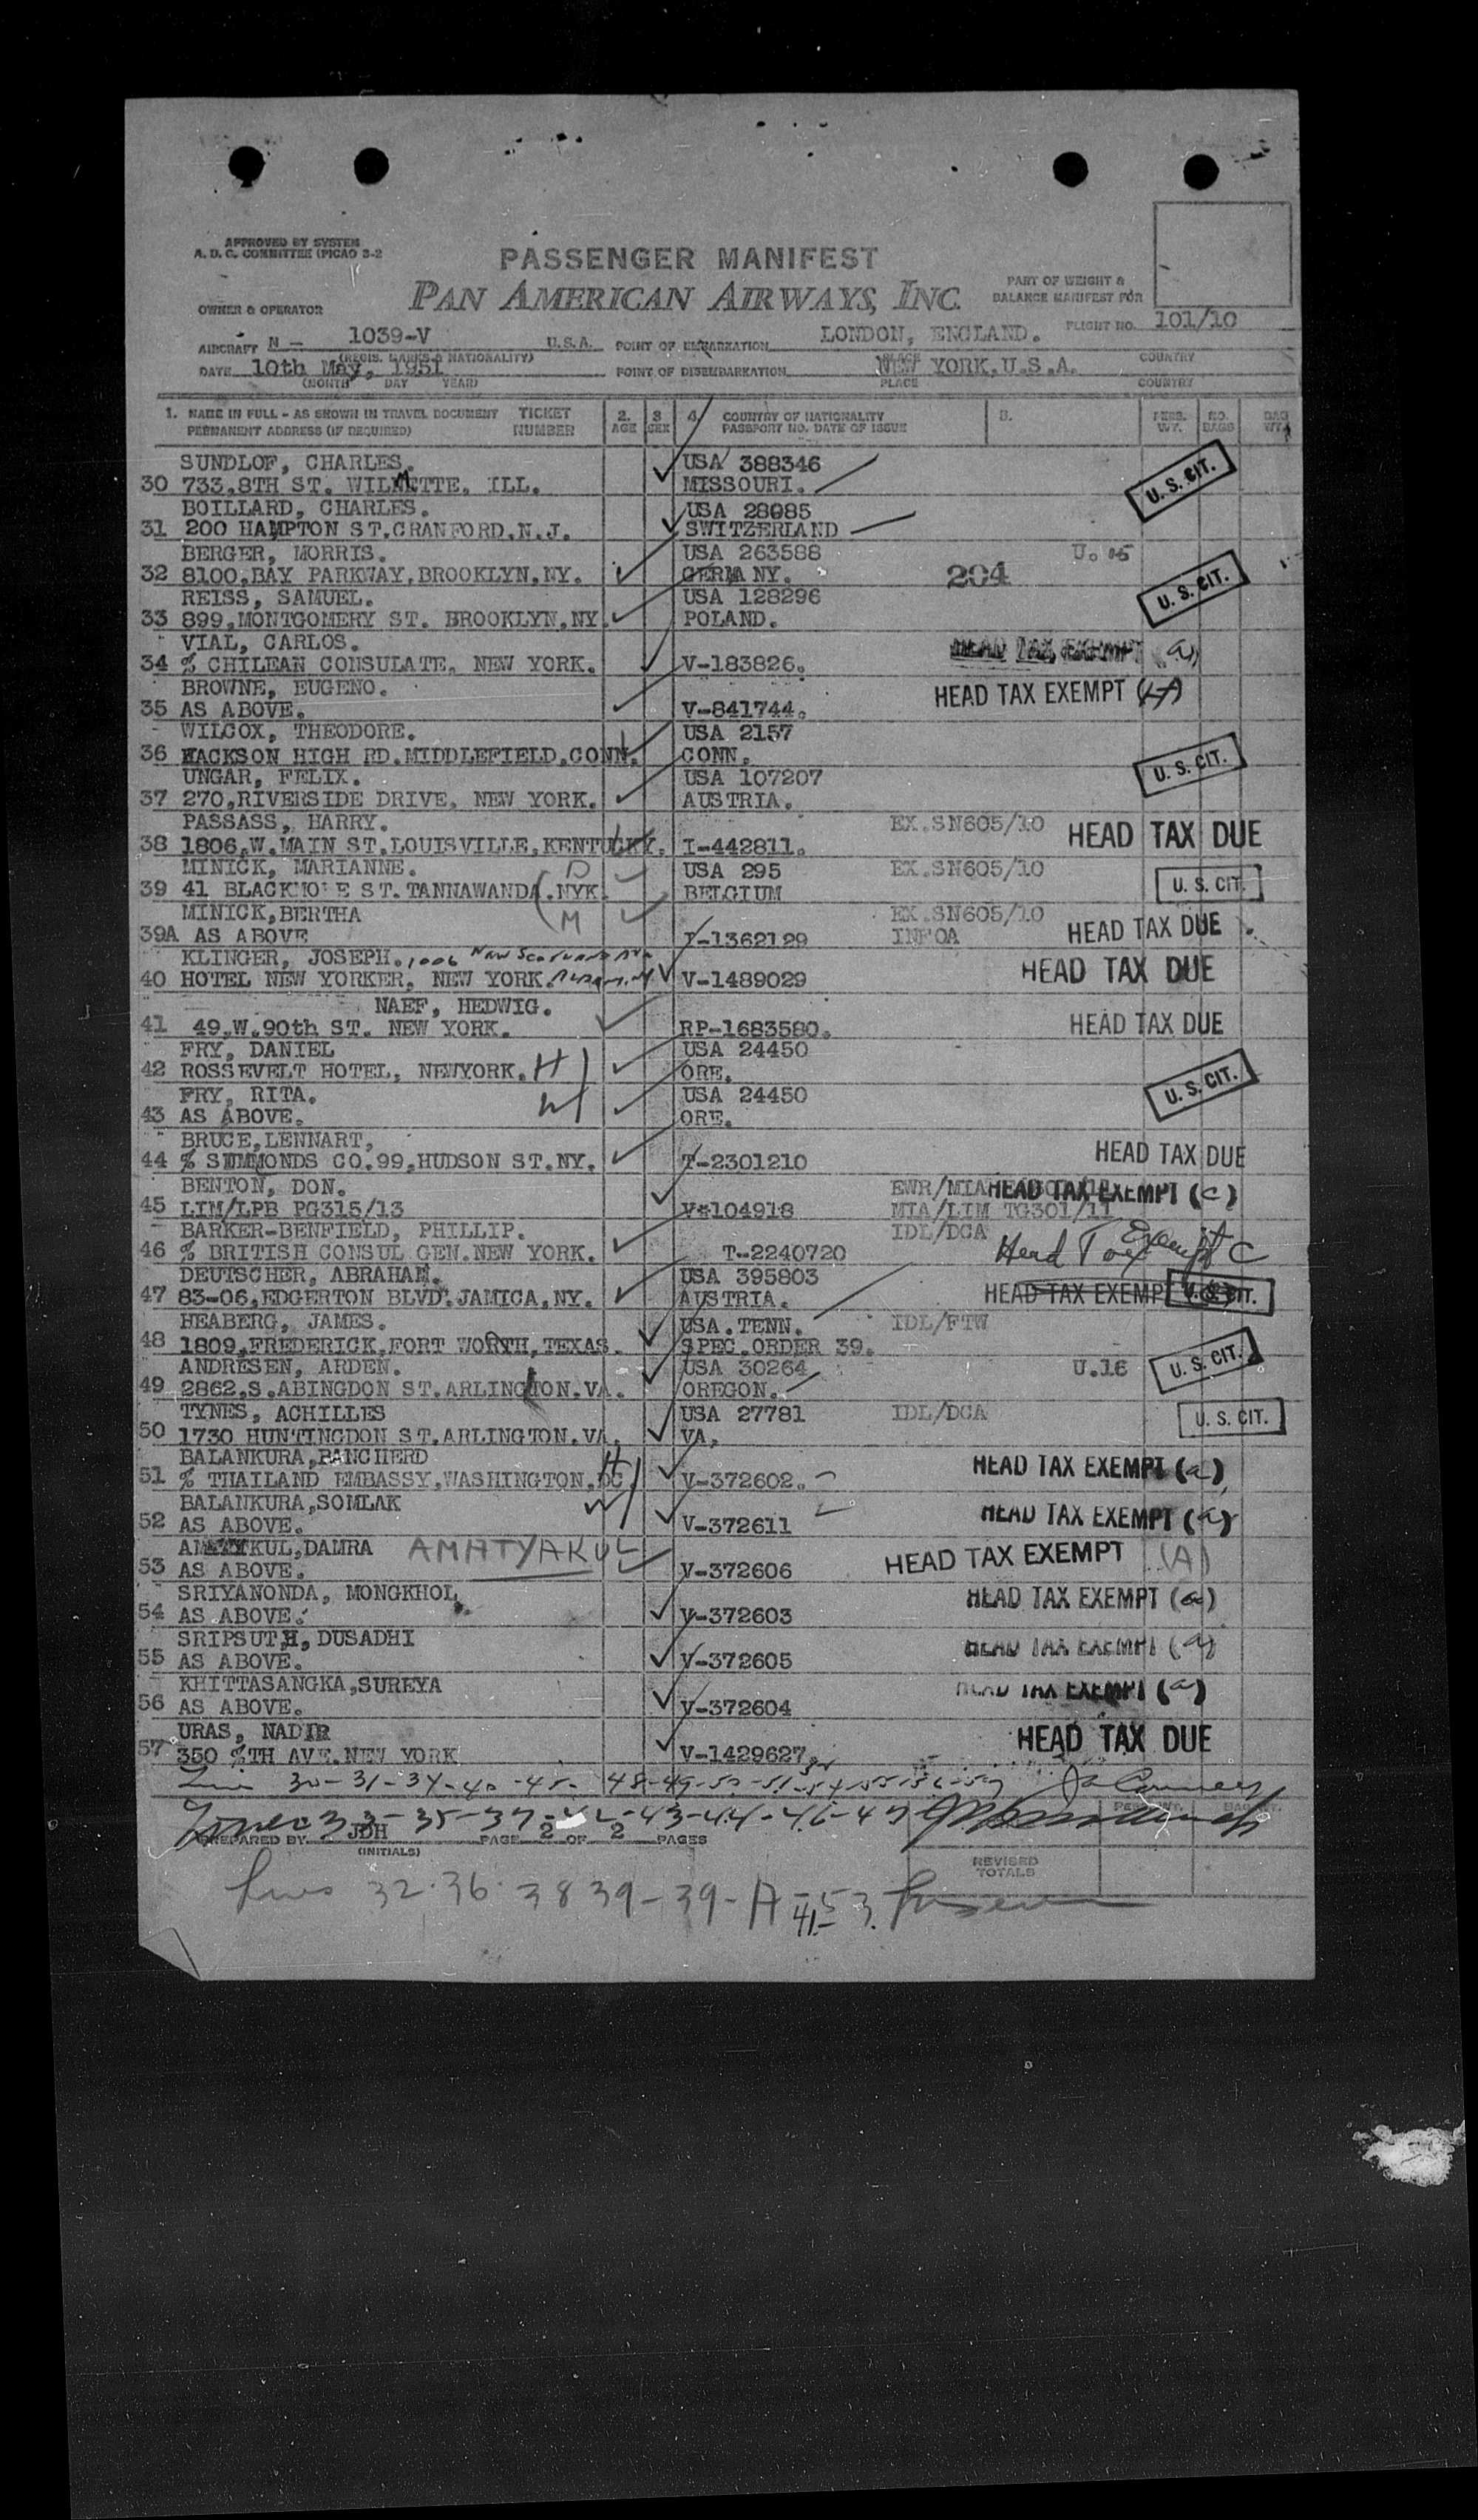 APPROVED BY SYSTEM
A. D. C. COMMITTEE (PICAO 3-2
PASSENGER MANIFEST
PAN AMERICAN AIRWAYS, INC.
PART OF WEIGHT &
BALANCE MANIFEST FOR
OWNER & OPERATOR
FLIGHT NO. 101/10
AIRCRAFT N - 1039-V U.S.A. POINT OF EMBARKATION LONDON, ENGLAND.
(REGIS. MARKS & NATIONALITY) PLACE COUNTRY
DATE 10th May, 1951 POINT OF DISEMBARKATION NEW YORK,U.S.A.
(MONTH DAY YEAR) PLACE COUNTRY
1. NAME IN FULL - AS SHOWN IN TRAVEL DOCUMENT TICKET 2. 3 4. COUNTRY OF NATIONALITY 5. PERS. NO. BAG
PERMANENT ADDRESS (IF REQUIRED) NUMBER AGE SEX PASSPORT NO. DATE OF ISSUE WT. BAGS WT.
SUNDLOF, CHARLES. USA 388346 U. S. CIT.
30 733.8TH ST. WILMETTE, ILL. MISSOURI.
BOILLARD, CHARLES. USA 28085
31 200 HAMPTON ST.CRANFORD.N.J. SWITZERLAND
BERGER, MORRIS. USA 263588
32 8100,BAY PARKWAY,BROOKLYN,NY. GERMANY. 204 U. S. CIT.
REISS, SAMUEL. USA 128296
33 899,MONTGOMERY ST. BROOKLYN,NY. POLAND.
VIAL, CARLOS. HEAD TAX EXEMPT (a)
34 % CHILEAN CONSULATE, NEW YORK. V-183826.
BROWNE, EUGENO. HEAD TAX EXEMPT
35 AS ABOVE. V-841744.
WILCOX, THEODORE. USA 2157
36 HACKSON HIGH RD.MIDDLEFIELD,CONN. CONN. U. S. CIT.
UNGAR, FELIX. USA 107207
37 270,RIVERSIDE DRIVE, NEW YORK. AUSTRIA.
PASSASS, HARRY. EX.SN605/10 HEAD TAX DUE
38 1806,W.MAIN ST.LOUISVILLE,KENTUCKY. I-442811.
MINICK, MARIANNE. D USA 295 EX.SN605/10
39 41 BLACKMORE ST.TANNAWANDA.NYK. BELGIUM U. S. CIT.
MINICK,BERTHA M EX.SN605/10
39A AS ABOVE I-1362129 INFOA HEAD TAX DUE
KLINGER, JOSEPH. 1006 New Scotland Ave
40 HOTEL NEW YORKER, NEW YORK. V-1489029 HEAD TAX DUE
NAEF, HEDWIG.
41 49,W.90th ST. NEW YORK. RP-1683580. HEAD TAX DUE
FRY, DANIEL USA 24450
42 ROSSEVELT HOTEL, NEWYORK. H ORE. U. S. CIT.
FRY, RITA. W USA 24450
43 AS ABOVE. ORE.
BRUCE,LENNART,
44 % SIMMONDS CO.99,HUDSON ST.NY. T-2301210 HEAD TAX DUE
BENTON, DON. EWR/MIA HEAD TAX EXEMPT (C)
45 LIM/LPB PG315/13 V-104918 MIA/LIM TG301/11
BARKER-BENFIELD, PHILLIP. IDL/DCA
46 % BRITISH CONSUL GEN.NEW YORK. T-2240720 Head Tax Exempt C
DEUTSCHER, ABRAHAM. USA 395803
47 83-06,EDGERTON BLVD.JAMICA,NY. AUSTRIA. HEAD TAX EXEMPT U. S. CIT.
HEABERG, JAMES. USA.TENN. IDL/FTW
48 1809,FREDERICK,FORT WORTH,TEXAS. SPEC.ORDER 39.
ANDRESEN, ARDEN. USA 30264 U.16 U. S. CIT.
49 2862,S.ABINGDON ST.ARLINGTON.VA. OREGON.
TYNES, ACHILLES USA 27781 IDL/DCA U. S. CIT.
50 1730 HUNTINGDON ST.ARLINGTON.VA. VA.
BALANKURA,BANCHERD H HEAD TAX EXEMPT (a)
51 % THAILAND EMBASSY,WASHINGTON,DC V-372602.
BALANKURA,SOMLAK W HEAD TAX EXEMPT (a)
52 AS ABOVE. V-372611
KUL,DAMRA AMATYAKUL HEAD TAX EXEMPT (A)
53 AS ABOVE. V-372606
SRIYANONDA, MONGKHOL HEAD TAX EXEMPT (a)
54 AS ABOVE. V-372603
SRIPSUTH, DUSADHI HEAD TAX EXEMPT (a)
55 AS ABOVE. V-372605
KHITTASANGKA,SUREYA HEAD TAX EXEMPT (a)
56 AS ABOVE. V-372604
URAS, NADIR HEAD TAX DUE
57 350 %TH AVE.NEW YORK V-1429627.
30-31-34-40-45- 48-49-50-51-
33-35-37-42-43-44-46-47
PREPARED BY JDH PAGE 2 OF 2 PAGES
(INITIALS)
REVISED
TOTALS
Lines 32.36. 38 39-39-A 41- 53.